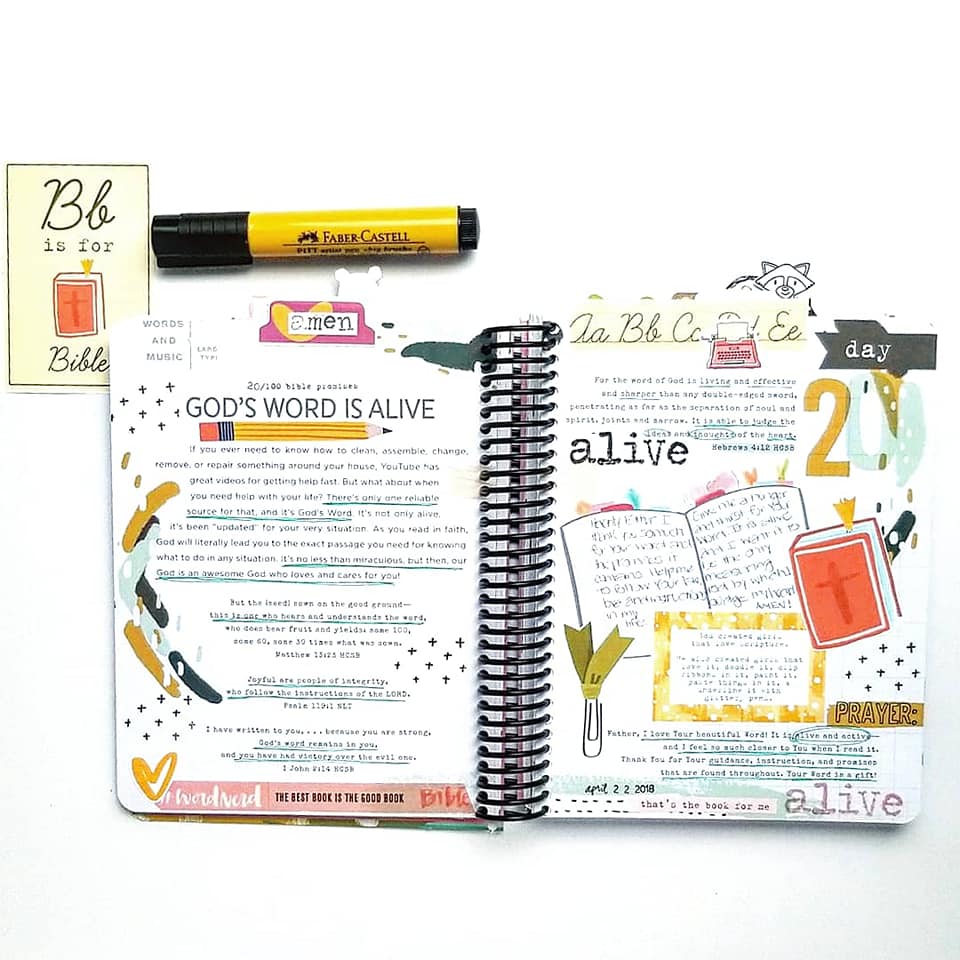 Bb
is for
Bible
FABER-CASTELL
PITT artist pen big brush
WORDS
AND
MUSIC
amen
20/100 bible promises
GOD'S WORD IS ALIVE
If you ever need to know how to clean, assemble, change,
remove, or repair something around your house, YouTube has
great videos for getting help fast. But what about when
you need help with your life? There's only one reliable
source for that, and it's God's Word. It's not only alive,
it's been "updated" for your very situation. As you read in faith,
God will literally lead you to the exact passage you need for knowing
what to do in any situation. It's no less than miraculous, but then, our
God is an awesome God who loves and cares for you!
But the [seed] sown on the good ground—
this is one who hears and understands the word,
who does bear fruit and yields: some 100,
some 60, some 30 times what was sown.
Matthew 13:23 HCSB
Joyful are people of integrity,
who follow the instructions of the LORD.
Psalm 119:1 NLT
I have written to you, . . . because you are strong,
God's word remains in you,
and you have had victory over the evil one.
1 John 2:14 HCSB
#wordnerd
THE BEST BOOK IS THE GOOD BOOK
Bible
Aa Bb Cc Ee
day
20
For the word of God is living and effective
and sharper than any double-edged sword,
penetrating as far as the separation of soul and
spirit, joints and marrow. It is able to judge the
ideas and thoughts of the heart.
Hebrews 4:12 HCSB
alive
God created girls
that love scripture.
He also created girls that
love it, doodle it, drip
ribbon in it, paint it,
paste things in it, &
underline it with
glitter pens.
PRAYER:
Father, I love Your beautiful Word! It is alive and active—
and I feel so much closer to You when I read it.
Thank You for Your guidance, instruction, and promises
that are found throughout. Your Word is a gift!
april 22 2018
that's the book for me
alive